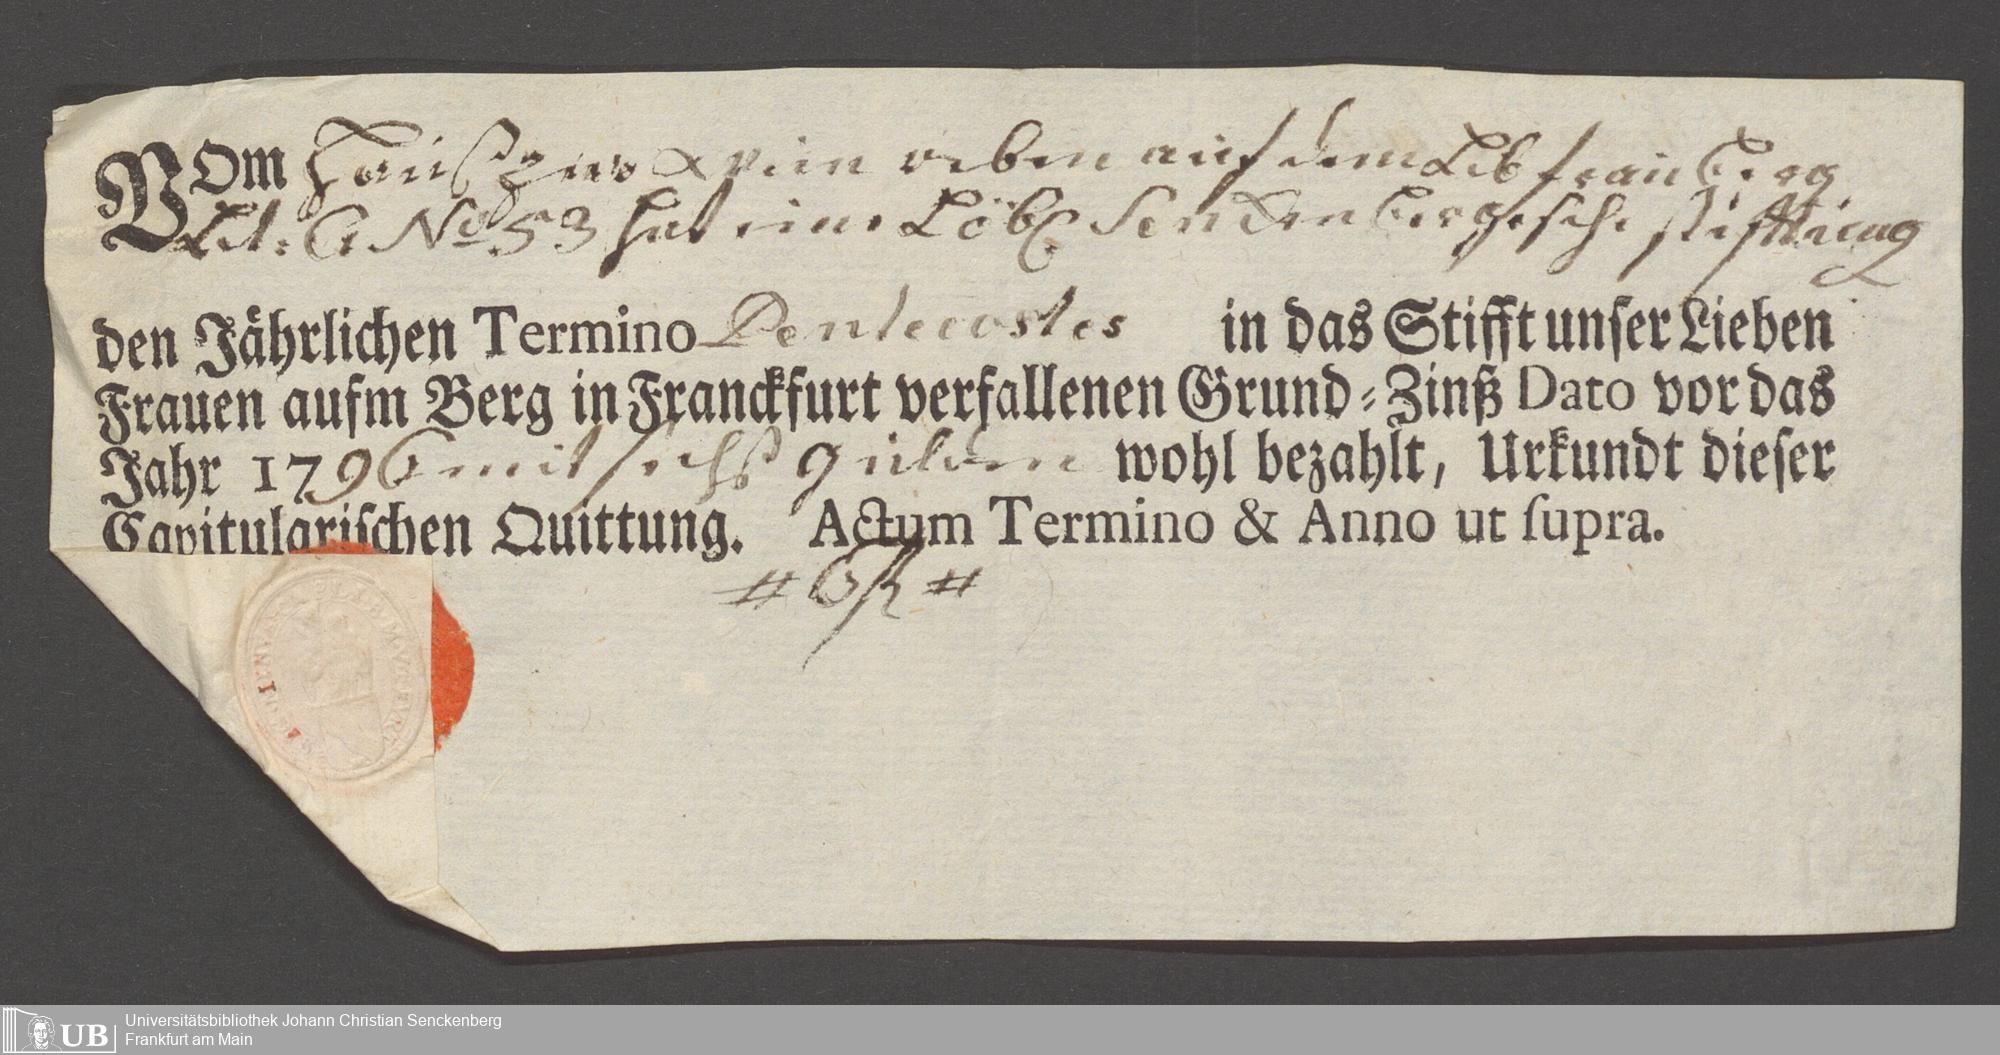 VOm Hauß zur weinreben auf dem Liebfrauberg
Lit: G No 53 hat eine Löbl Senckenbergische stifftung
den Jährlichen Termino Pentecostes in das Stifft unser Lieben
Frauen aufm Berg in Franckfurt verfallenen Grund-Zinß Dato vor das
Jahr 1796 mit sechß gulden wohl bezahlt, Urkundt dieser
Capitularischen Quittung. Actum Termino & Anno ut supra.
# 6 fl #
UB
Universitätsbibliothek Johann Christian Senckenberg
Frankfurt am Main